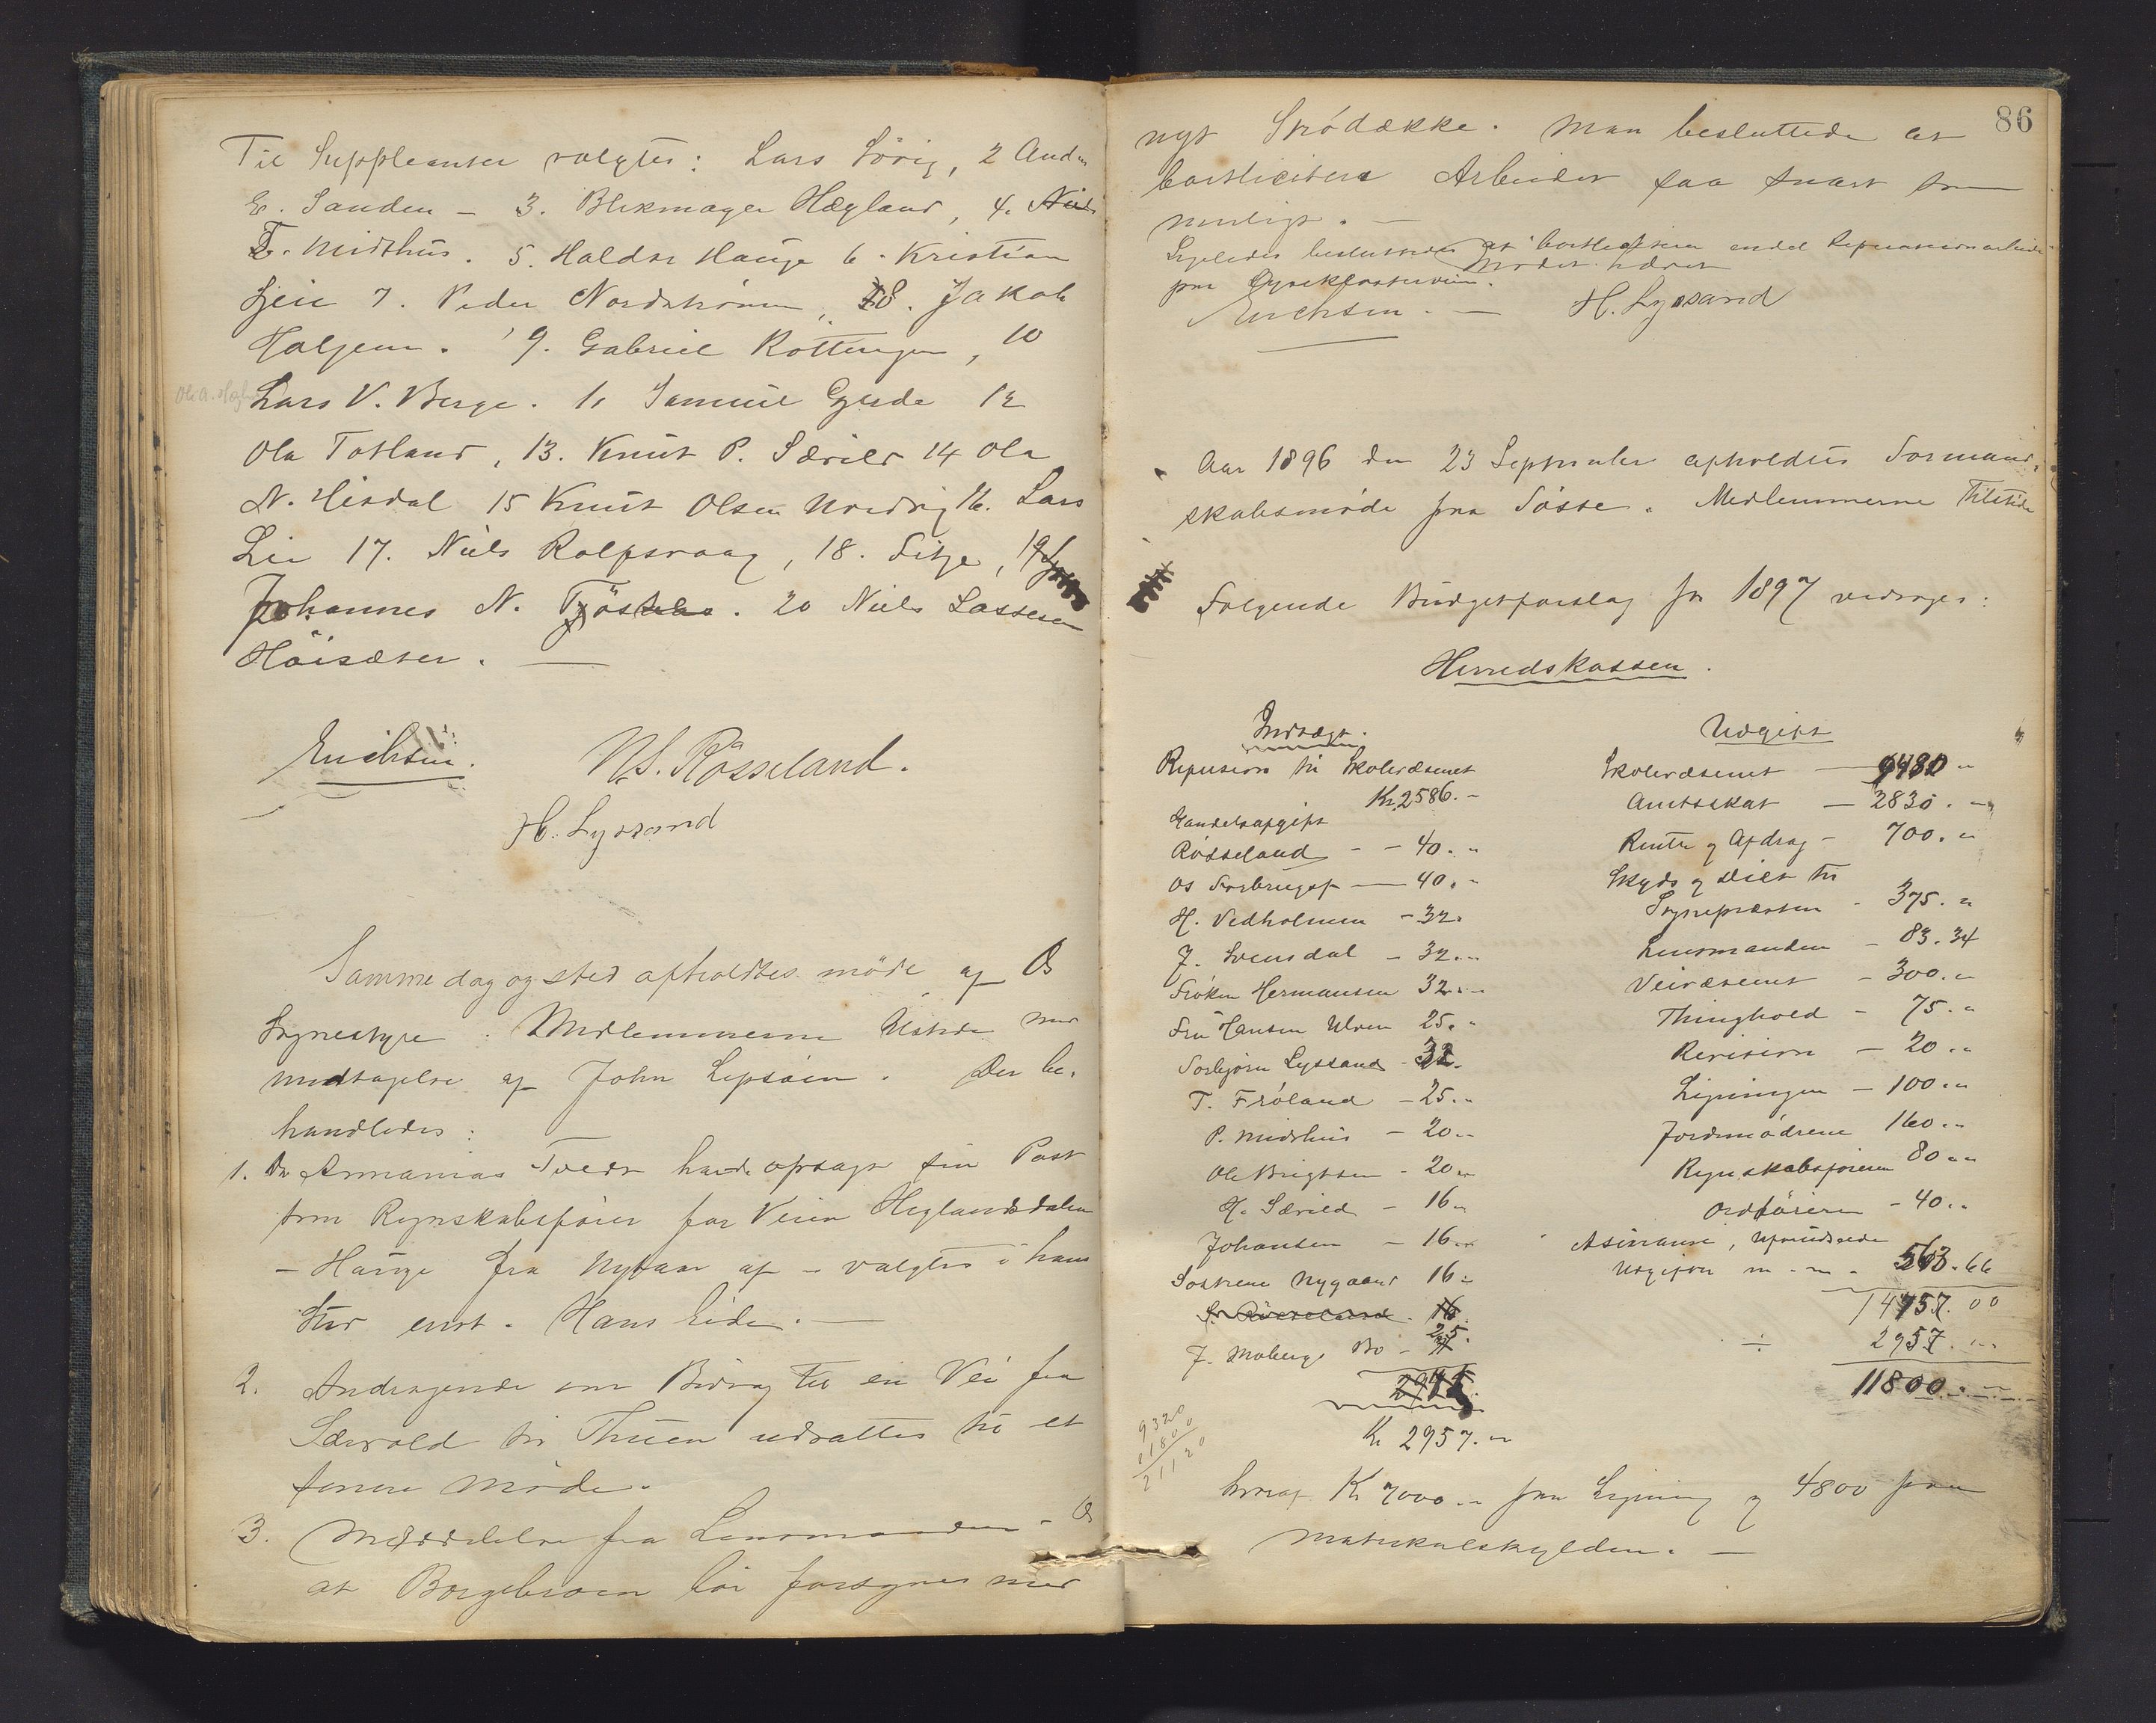 Til Suppleanter valgtes: Lars Sörvig, 2 And.
E. Sanden - 3. Blikmager Hægland, 4. Niels
T. Midthus. 5. Haldor Hauge 6. Kristian
Lien 7. Peder Nordstrømen, 8. Jakob
Haljem. 9. Gabriel Rottingen, 10
Lars V. Berge. 11 Samuel Gjerde 12
Ola Totland, 13. Knut P. Særvold 14 Ola
N. Hisdal 15 Knut Olsen Nordvig 16. Lars
Lie 17. Niels Rolfsvaag, 18. Sitje, 19
Johannes N. Tjösteboe. 20 Niels Lassesen
Höisæter. —
Erichsen. N.S. Rösseland.
H. Lyssand
Samme dag og sted afholdtes möde af Os
Sognestyre. Medlemmerne tilstede med
undtagelse af John Lepsöen. Der be-
handledes:
1. Da Annanias Tveit havde opsagt sin Post
som Regnskabsfører for Veien Heglandsdalen
- Hauge fra Nytaar af - valgtes i hans
Sted enst. Hans Eide. —
2. Andragende om Bidrag til en Vei fra
Særvold til Thuen udsattes til et
senere Møde.
3. Meddelelse fra Lensmanden i Os
at Borgebroen bør forsynes med
86
nyt Snødække. Man besluttede at
bortlicitere Arbeidet saa snart som
muligt. —
Ligeledes besluttedes at bortlicitere endel Reparationsarbeide
paa Lysekloserveien. Mødet hævet
Erichsen. — H. Lyssand
Aar 1896 den 23 September afholdtes Formand-
skabsmøde paa Søfte. Medlemmerne Tilstede
Følgende Budgetforslag for 1897 vedtoges:
Herredskassen.
Indtægt. Udgift
Refusion til Skolevæsenet Kr. 2586.-
Handelsafgift
Rösseland - - 40.-
Os Forbrugsf. — 40.-
H. Vedholmen - 32.
J. Svensdal - 32.-
Frøken Hermansen 32.-
Fru Hansen Ulven 25.-
Torbjørn Lyssand - 32.
T. Frøland - 25.-
P. Midthus - 20.-
Ole Brigtsen - 20.-
H. Særvold - 16.-
Johansen - 16.-
Søstrene Nygaard 16.-
S. Rösseland. 16
J. Moberg Bo - 25.
Kr 2957.-
Skolevæsenet — 9430 -
Amtsskat - 2830.-
Renter og Afdrag - 700.-
Skyds og Diæt til
Sognepræsten - 375.-
Lensmanden - 83.34
Veivæsenet - 300.-
Thinghold - 75.-
Revision - 20.-
Ligningen - 100.-
Jordmødrene 160.-
Regnskabsføreren 80.-
Ordføreren - 40.-
Assurance, uforudseede
Udgifter m. m. - 563.66
14757.00
÷ 2957.-
11800.-
9320
1180 0
2112 0
hvoraf Kr 7000.- paa Ligning og 4800 paa
Matrikulskylden. —